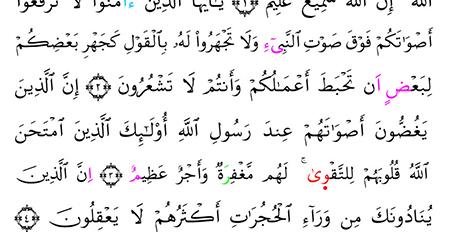 اَللَّهَ ۚ إِنَّ اَللَّهَ سَمِيعٌ عَلِيمٌ ﴿١﴾ يَٰأَيُّهَا اَلذِينَ ءَامَنُوا لَا تَرْفَعُوا
أَصْوَٰتَكُمْ فَوْقَ صَوْتِ اِلنَّبِيٓءِ وَلَا تَجْهَرُوا لَهُۥ بِالْقَوْلِ كَجَهْرِ بَعْضِكُمْ
لِبَعْضٍ اَن تَحْبَطَ أَعْمَٰلُكُمْ وَأَنتُمْ لَا تَشْعُرُونَ ﴿٢﴾ إِنَّ اَلذِينَ
يَغُضُّونَ أَصْوَٰتَهُمْ عِندَ رَسُولِ اِللَّهِ أُوْلَٰٓئِكَ اَلذِينَ اَمْتَحَنَ
اَللَّهُ قُلُوبَهُمْ لِلتَّقْوۭىٰ ۚ لَهُم مَّغْفِرَةٌ وَأَجْرٌ عَظِيمٌ ﴿٣﴾ اِنَّ اَلذِينَ
يُنَادُونَكَ مِن وَرَآءِ اِلْحُجُرَٰتِ أَكْثَرُهُمْ لَا يَعْقِلُونَ ﴿٤﴾